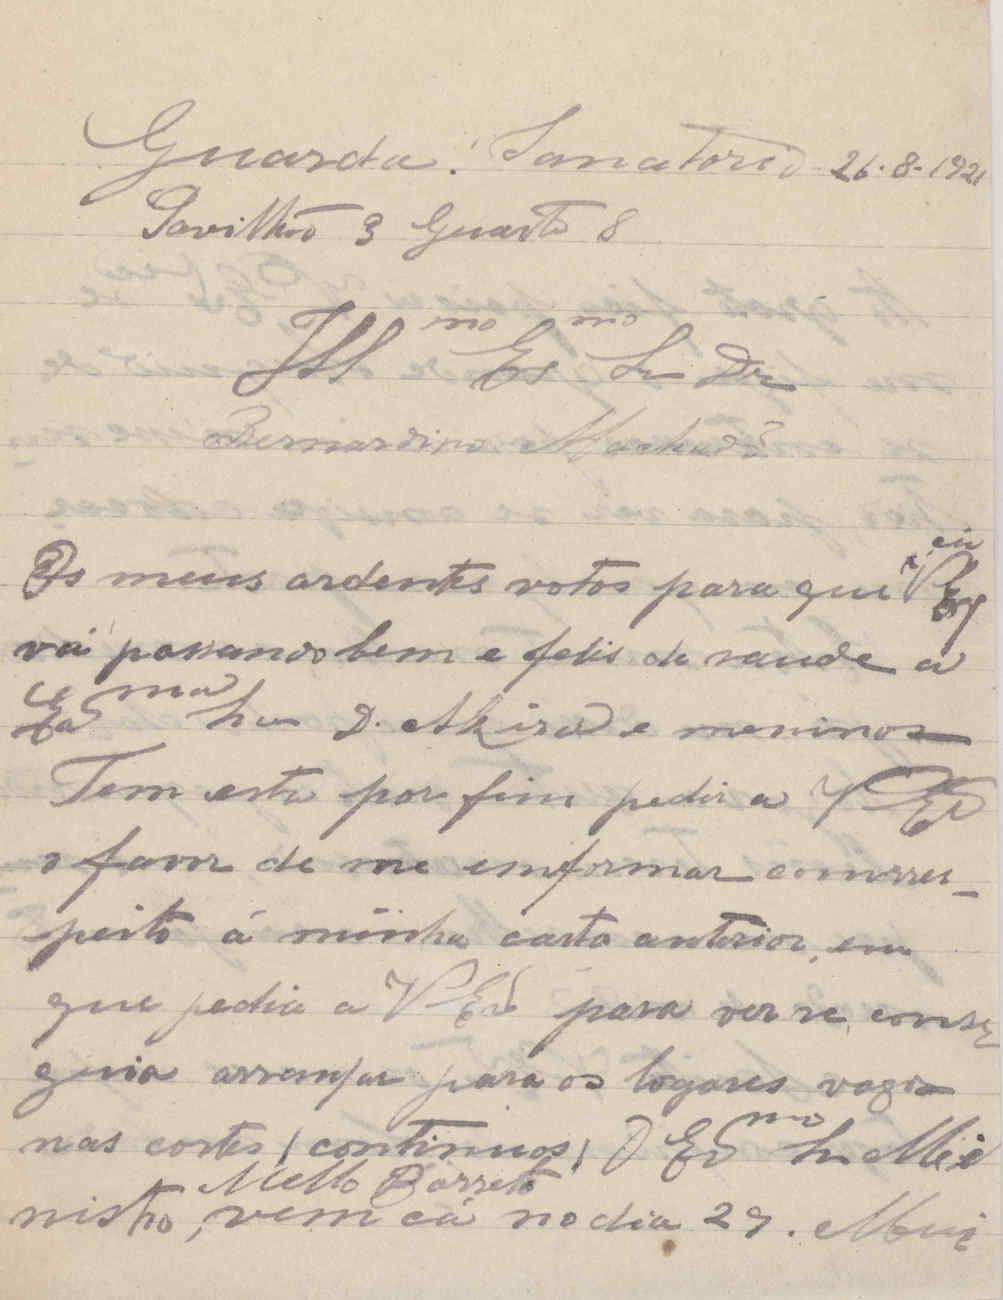 Guarda. Sanatorio 26-8-1921
Pavilhão 3 Quarto 8
Ill mo Ex mo Sr Dr
Bernardino Machado
Os meus ardentes votos para que V Ex cia
vá passando bem e felis de saude a
Ex ma Sra D. Alzira e meninos
Tem esta por fim pedir a V Ex
o favor de me emformar com rres-
peito á minha carta anterior, em
que pedia a V Ex para ver se conse
guia arrenjar para os logares vagos
nas cortes (continuos) O Ex mo Sr Mi
nistro, Mello Barreto vem cá no dia 29. Mui